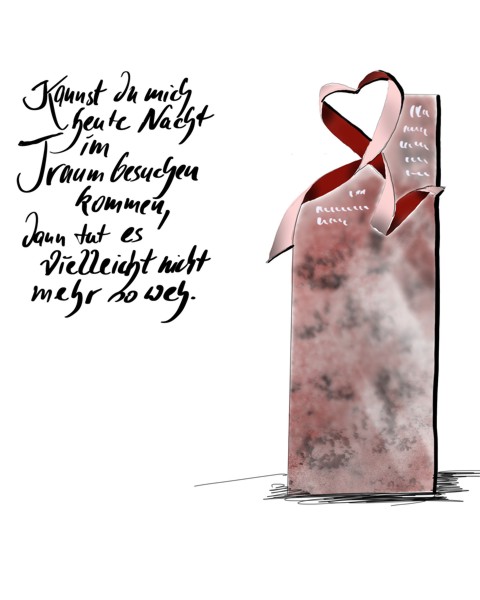 Kannst du mich
heute Nacht
im
Traum besuchen
kommen,
dann tut es
vielleicht nicht
mehr so weh.